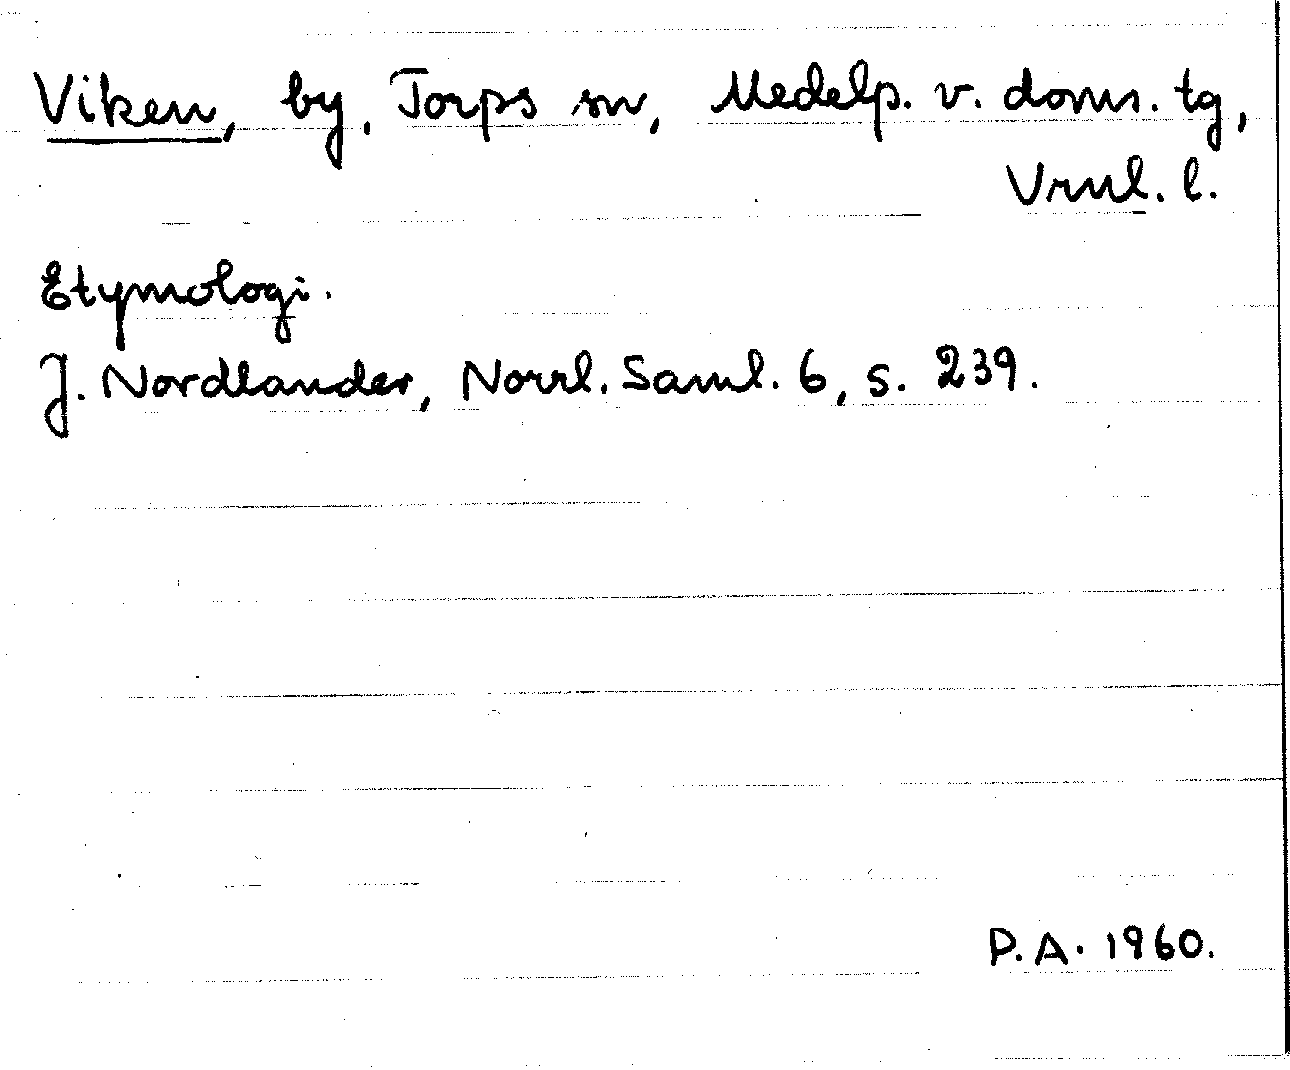 Viken, by, Torps sn, Medelp. v. doms. tg,
Vrnl. l.
Etymologi.
J. Nordlander, Norrl. Saml. 6, s. 239.
P.A. 1960.